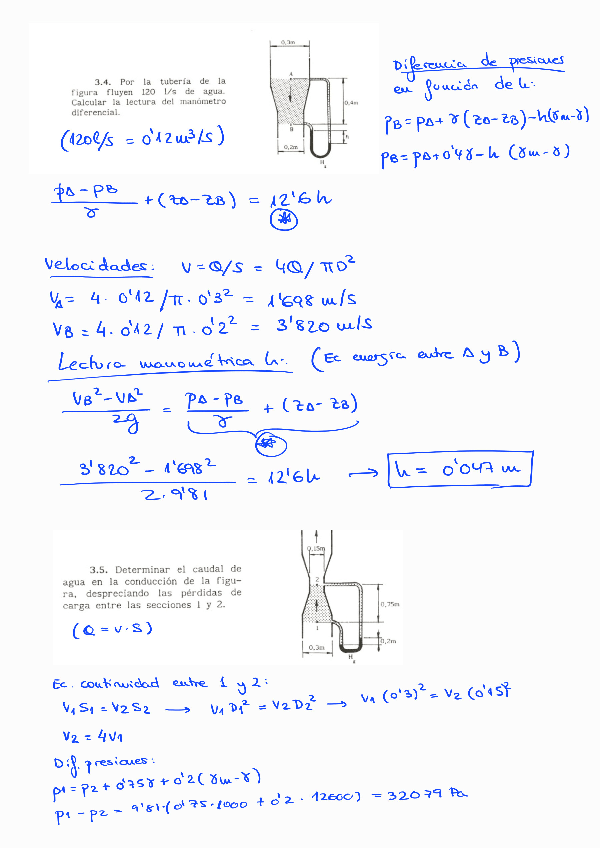 3.4. Por la tubería de la
figura fluyen 120 l/s de agua.
Calcular la lectura del manómetro
diferencial.
(120l/s = 0'12m³/s)
0,3m
A
0,4m
B
h
0,2m
H
Diferencia de presiones
en función de h:
pB = pA + γ(zA-zB) - h(γm-γ)
pB = pA + 0'4γ - h (γm-γ)
pA - pB / γ + (zA - zB) = 12'6h
*
Velocidades: V = Q/S = 4Q/πD²
VA = 4 · 0'12/π · 0'3² = 1'698 m/s
VB = 4 · 0'12/π · 0'2² = 3'820 m/s
Lectura manométrica h: (Ec energía entre A y B)
VB² - VA² / 2g = pA - pB / γ + (zA - zB)
*
3'820² - 1'698² / 2·9'81 = 12'6h → h = 0'047 m
3.5. Determinar el caudal de
agua en la conducción de la figu-
ra, despreciando las pérdidas de
carga entre las secciones 1 y 2.
(Q = v·S)
0,15m
2
0,75m
1
0,2m
0,3m
H
Ec. continuidad entre 1 y 2:
V1S1 = V2S2 → V1D1² = V2D2² → V1(0'3)² = V2(0'15)²
V2 = 4V1
Dif. presiones:
p1 = p2 + 0'75γ + 0'2(γm-γ)
p1 - p2 = 9'81·(0'75·1000 + 0'2·12600) = 32079 Pa